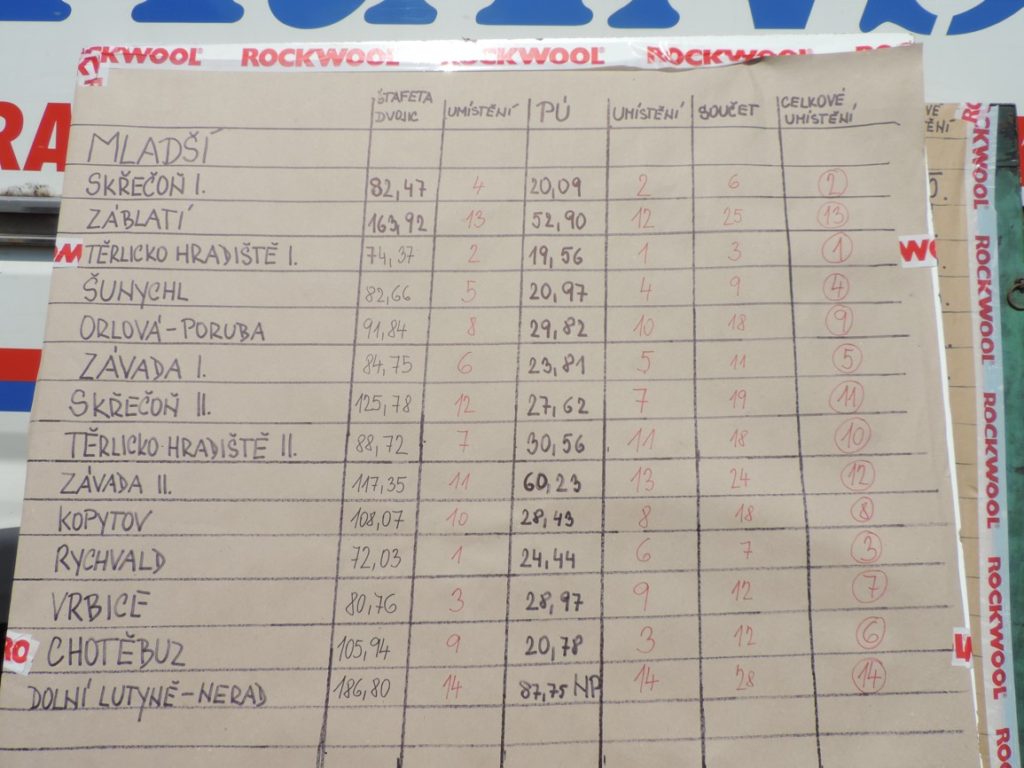 ROCKWOOL ROCKWOOL ROCKWOOL ROCKWOOL
ŠTAFETA DVOJIC UMÍSTĚNÍ PÚ UMÍSTĚNÍ SOUČET CELKOVÉ UMÍSTĚNÍ
MLADŠÍ
SKŘEČOŇ I. 82,47 4 20,09 2 6 2
ZÁBLATÍ 163,92 13 52,90 12 25 13
TĚRLICKO HRADIŠTĚ I. 74,37 2 19,56 1 3 1
ŠUNYCHL 82,66 5 20,97 4 9 4
ORLOVÁ-PORUBA 91,84 8 29,82 10 18 9
ZÁVADA I. 84,75 6 23,81 5 11 5
SKŘEČOŇ II. 125,78 12 27,62 7 19 11
TĚRLICKO-HRADIŠTĚ II. 88,72 7 30,56 11 18 10
ZÁVADA II. 117,35 11 60,23 13 24 12
KOPYTOV 108,07 10 28,43 8 18 8
RYCHVALD 72,03 1 24,44 6 7 3
VRBICE 80,76 3 28,97 9 12 7
CHOTĚBUZ 105,94 9 20,78 3 12 6
DOLNÍ LUTYNĚ-NERAD 186,80 14 87,75 NP 14 28 14
ROCKWOOL
ROCKWOOL
ROCKWOOL
ROCKWOOL